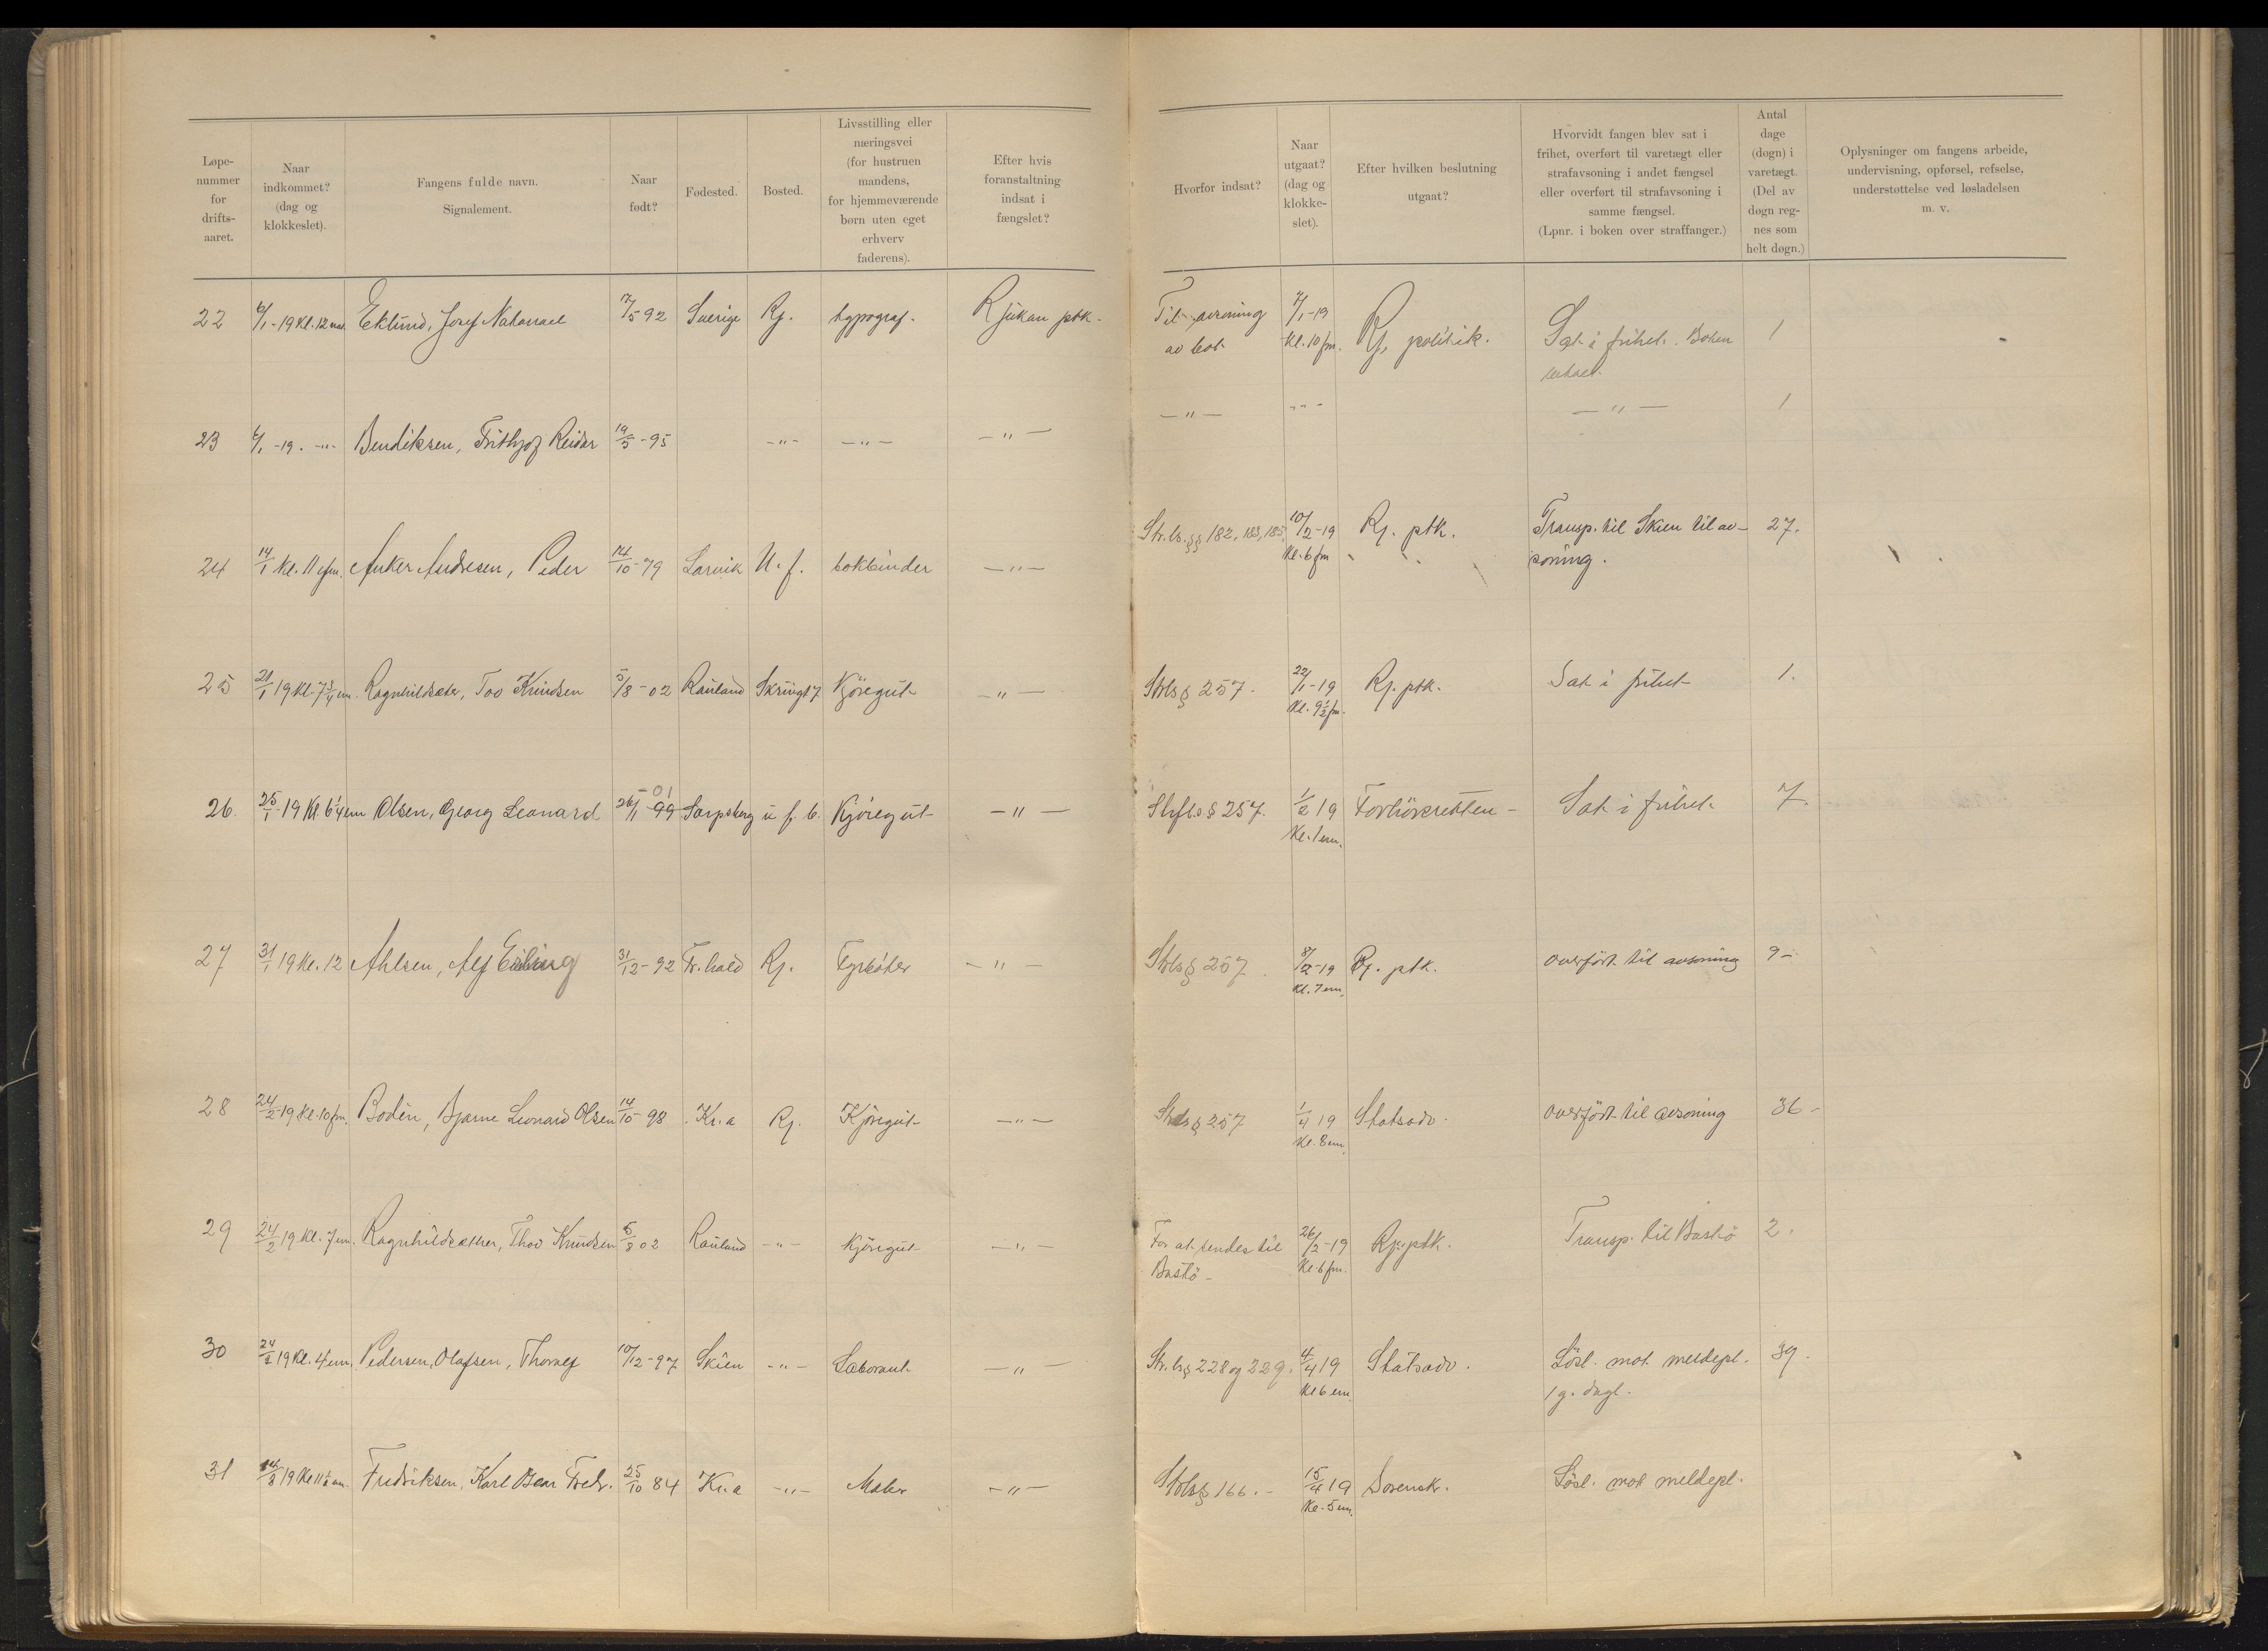 Løpe-
nummer
for
drifts-
aaret.
Naar
indkommet?
(dag og
klokkeslet).
Fangens fulde navn.
Signalement.
Naar
født?
Fødested.
Bosted.
Livsstilling eller
næringsvei
(for hustruen
mandens,
for hjemmeværende
børn uten eget
erhverv
faderens).
Efter hvis
foranstaltning
indsat i
fængslet?
Hvorfor indsat?
Naar
utgaat?
(dag og
klokke-
slet).
Efter hvilken beslutning
utgaat?
Hvorvidt fangen blev sat i
frihet, overført til varetægt eller
strafavsoning i andet fængsel
eller overført til strafavsoning i
samme fængsel.
(Lpnr. i boken over straffanger.)
Antal
dage
(døgn) i
varetægt.
(Del av
døgn reg-
nes som
helt døgn.)
Oplysninger om fangens arbeide,
undervisning, opførsel, refselse,
understøttelse ved løsladelsen
m. v.
22 6/1-19 Kl. 12 nat. Eklund, Josef Natanael 7/5 92 Sverige Rj. typograf. Rjukan ptk. Til avsoning 7/1-19 Rj. politik. Sat i frihet. Boten 1
av bot Kl. 10 fm.
23 6/1-19. -"- Bendiksen, Frithjof Reidar 19/5-95 -"- -"- -"- -"- -"- -"- 1
24 14/1 Kl. 11 efm. Anker Andresen, Peder 14/10-79 Larvik U. f. bokbinder -"- Str.ls. §§ 182, 183, 185. 10/2-19 Rj. ptk. Transp. til Skien til av- 27.
Kl. 6 fm soning.
25 21/1 19 Kl. 7 3/4 em. Ragnhildsæter, Tov Knudsen 5/8-02 Rauland Kjøregut -"- Strls § 257. 22/1-19 Rj. ptk. Sat i frihet 1.
Kl. 9 1/2 fm.
26. 25/1-19 Kl. 6 1/4 em Olsen, Georg Leonard 26/11 99 -01 Sarpsborg u. f. b. Kjøregut -"- Strfls § 257. 1/2 19 Forhørsretten - Sat i frihet 7.
Kl. 1 em.
27 31/1 19 Kl. 12 Ahlsen, Alf Erling 31/12-92 Fr.hald Rj. Fyrbøter -"- Strls § 257. 8/2-19 Rj. ptk. overført til avsoning 9-
Kl. 7 em.
28 24/2-19 Kl. 10 fm. Bodén, Bjarne Leonard Olsen 14/10-98 Kr.a Rj. Kjøregut -"- Strls § 257 1/4 19 Statsadv. overført til avsoning 36-
Kl. 8 em.
29 24/2 19 Kl. 7 em. Ragnhildsæther, Thov Knudsen 5/8 02 Rauland -"- Kjøregut -"- For at sendes til 26/2-19 Rj. ptk. Transp. til Bastø 2.
Bastø- Kl. 6 fm.
30 24/2 19 Kl. 4 em. Pedersen, Olafsen, Thoralf 10/12-97 Skien -"- Laborant -"- Str.ls § 228 og 229. 4/4 19 Statsadv. Løsl. mot meldepl. 39.
Kl 6 em. 1 g. dagl.
31 14/3 19 Kl 11 1/2 em. Fredriksen, Karl Fredr. 25/10 84 Kr.a -"- Maler -"- Strls § 166.- 15/4 19 Sorensk. Løsl. mot meldepl.
Kl. 5 em.